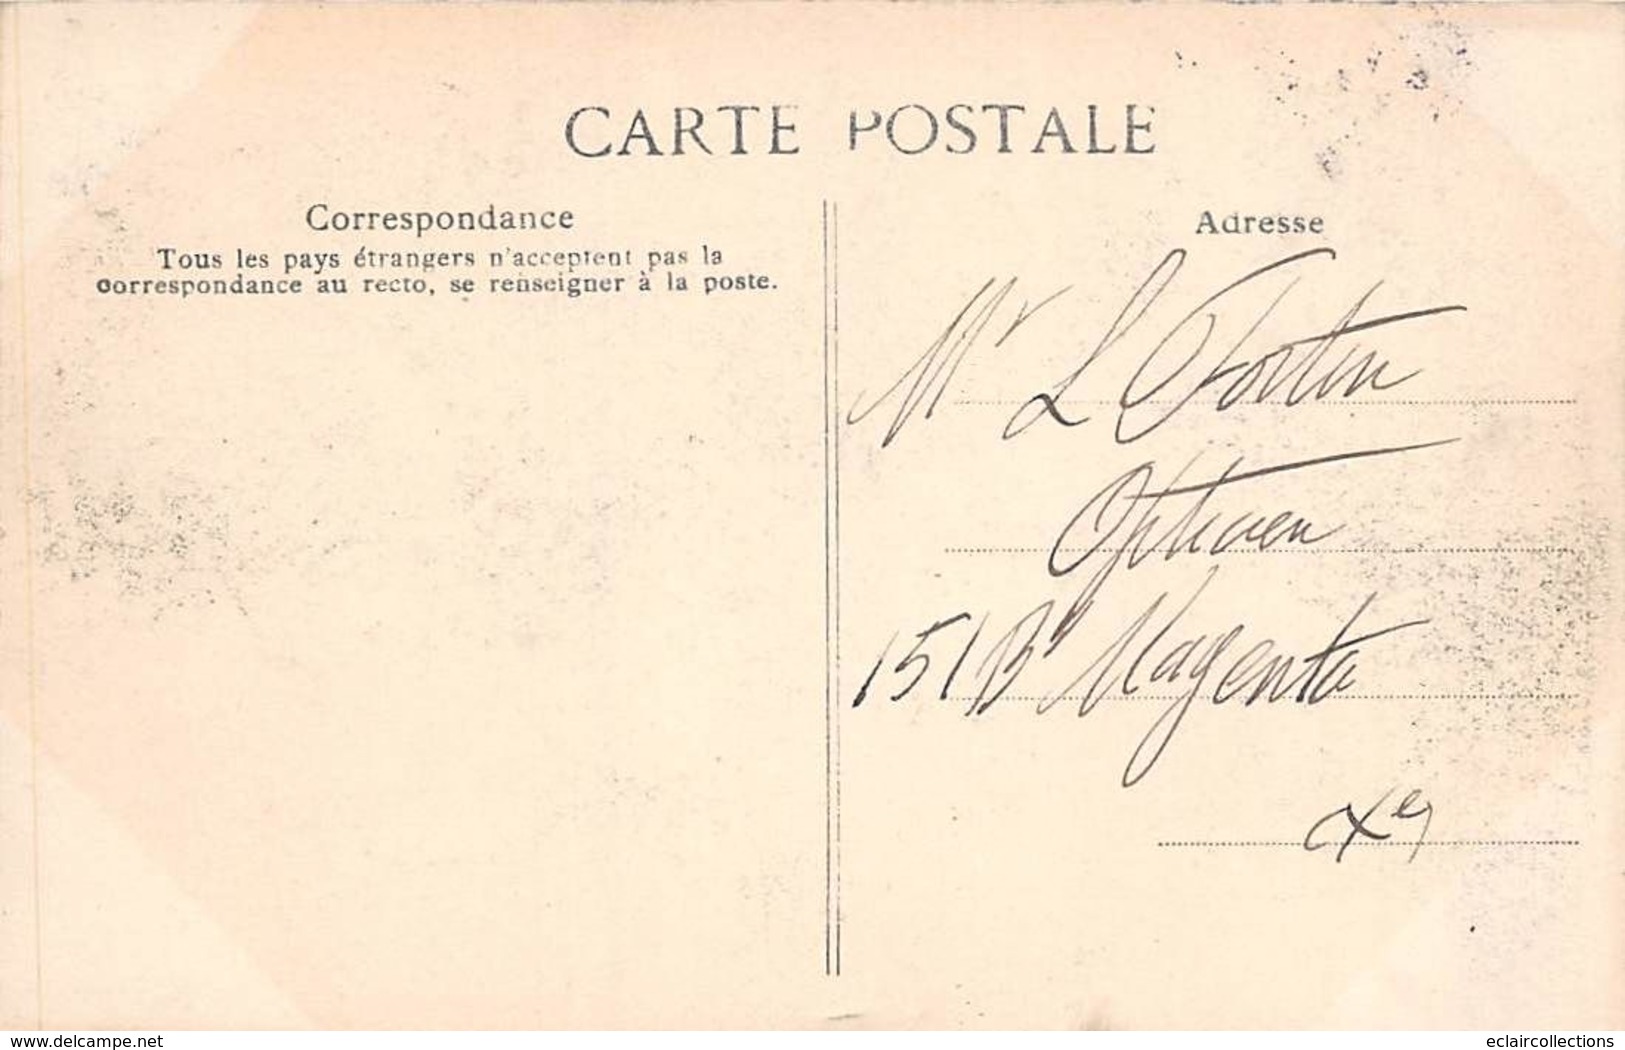 CARTE POSTALE
Correspondance
Tous les pays étrangers n'acceptent pas la
correspondance au recto, se renseigner à la poste.
Adresse
Mr L Fortin
Opticien
151 Bd Magenta
Xe
www.delcampe.net
eclaircollections